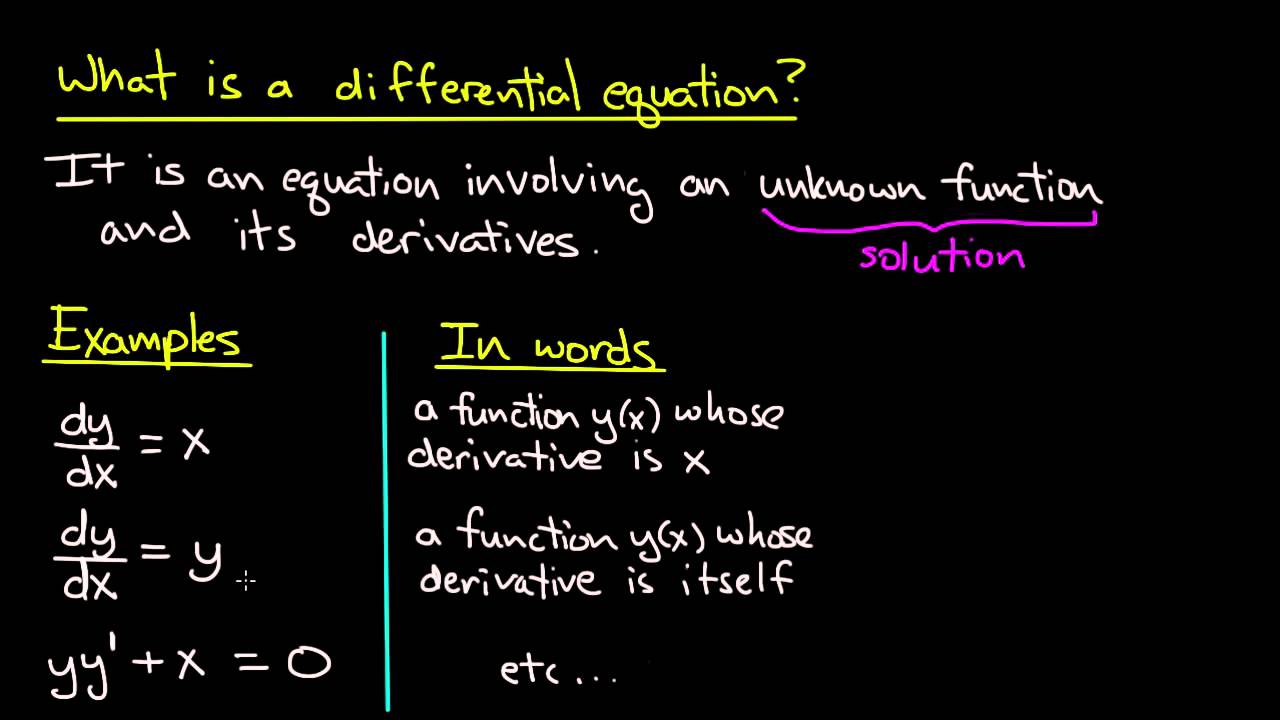 What is a differential equation?
It is an equation involving an unknown function
and its derivatives.
solution
Examples
dy/dx = x
dy/dx = y
yy' + x = 0
In words
a function y(x) whose
derivative is x
a function y(x) whose
derivative is itself
etc...